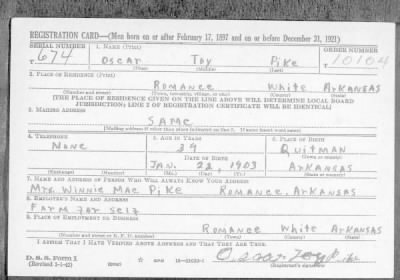 REGISTRATION CARD—(Men born on or after February 17, 1897 and on or before December 31, 1921)
SERIAL NUMBER 1. NAME (Print) ORDER NUMBER
T 674 Oscar Toy Pike T 10104
(First) (Middle) (Last)
2. PLACE OF RESIDENCE (Print)
Romance White Arkansas
(Number and street) (Town, township, village, or city) (County) (State)
[THE PLACE OF RESIDENCE GIVEN ON THE LINE ABOVE WILL DETERMINE LOCAL BOARD
JURISDICTION; LINE 2 OF REGISTRATION CERTIFICATE WILL BE IDENTICAL]
3. MAILING ADDRESS
SAME
[Mailing address if other than place indicated on line 2. If same insert word same]
4. TELEPHONE 5. AGE IN YEARS 6. PLACE OF BIRTH
None 39 Quitman
DATE OF BIRTH (Town or county)
Jan. 22, 1903 Arkansas
(Exchange) (Number) (Mo.) (Day) (Yr.) (State or country)
7. NAME AND ADDRESS OF PERSON WHO WILL ALWAYS KNOW YOUR ADDRESS
Mrs. Winnie Mae Pike Romance, Arkansas
8. EMPLOYER'S NAME AND ADDRESS
Farm for self
9. PLACE OF EMPLOYMENT OR BUSINESS
Romance White Arkansas
(Number and street or R. F. D. number) (Town) (County) (State)
I AFFIRM THAT I HAVE VERIFIED ABOVE ANSWERS AND THAT THEY ARE TRUE.
D. S. S. Form 1 Oscar Toy Pike
(Revised 1-1-42) (over) 16—21630-1 (Registrant's signature)